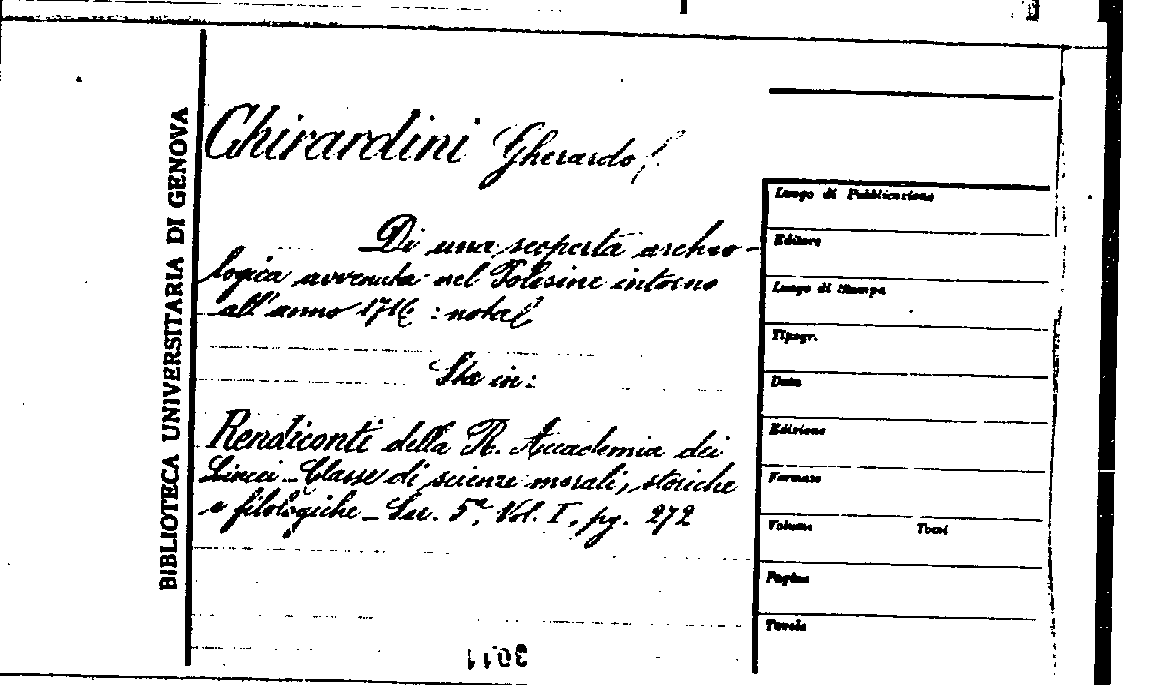 BIBLIOTECA UNIVERSITARIA DI GENOVA
Ghirardini Gherardo
Di una scoperta archeo-
logica avvenuta nel Polesine intorno
all'anno 1716 : nota
Sta in:
Rendiconti della R. Accademia dei
Lincei - Classe di scienze morali, storiche
e filologiche - Ser. 5ª, Vol. I, pg. 272
Luogo di Pubblicazione
Editore
Luogo di Stampa
Tipogr.
Data
Edizione
Formato
Volumi Tomi
Pagine
Tavole
3011